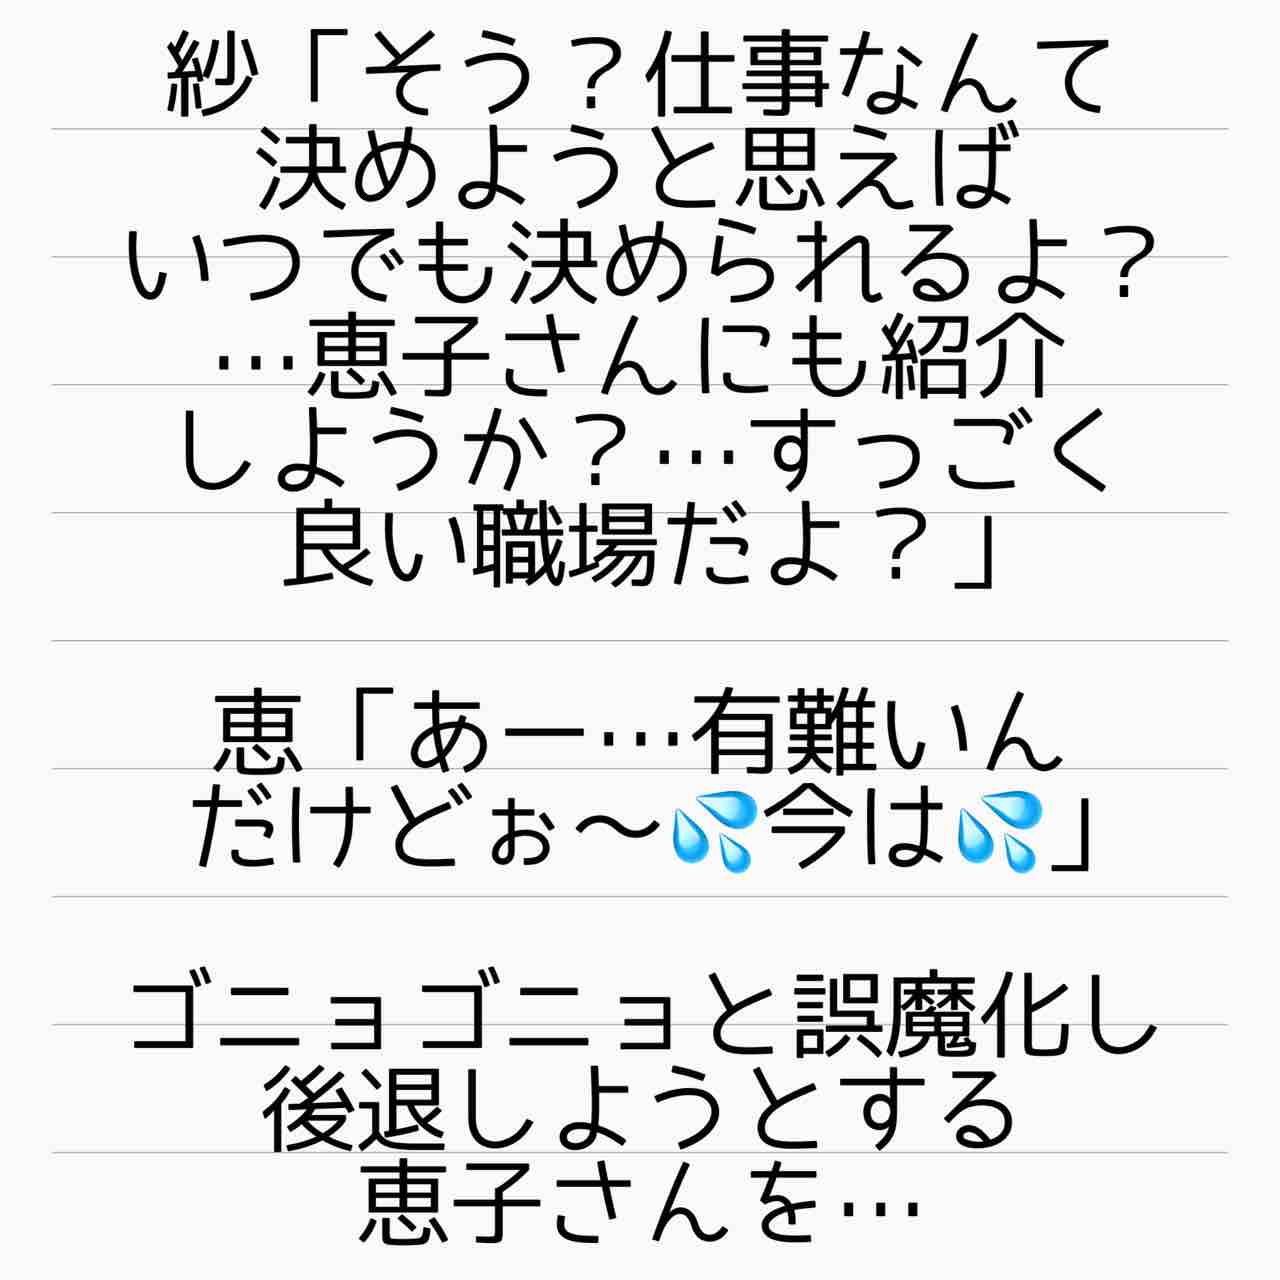 紗「そう？仕事なんて
決めようと思えば
いつでも決められるよ？
…恵子さんにも紹介
しようか？…すっごく
良い職場だよ？」
恵「あー…有難いん
だけどぉ〜💦今は💦」
ゴニョゴニョと誤魔化し
後退しようとする
恵子さんを…